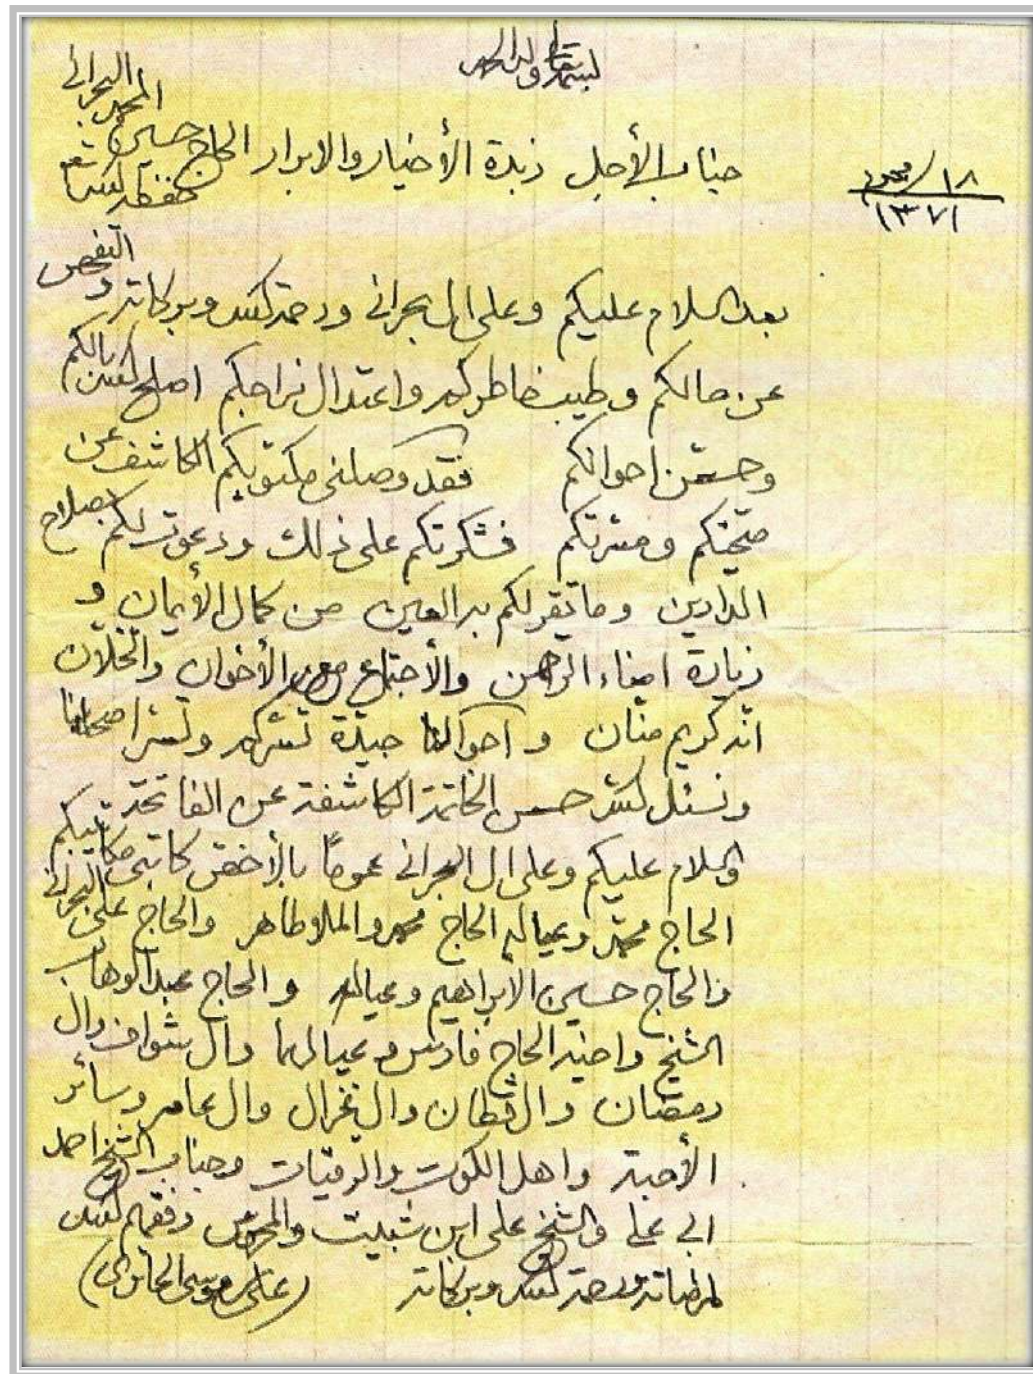 بسمه تعالى وله الحمد
١٨/محرم
١٣٧١
جناب الأجل زبدة الأخيار والابرار الحاج حسين المحمد البحراني
حفظه الله تعالى
بعد السلام عليكم وعلى ال بحراني ورحمة الله وبركاته والتفحص
عن حالكم وطيب خاطركم واعتدال مزاجكم اصلح الله بالكم
وحسّن احوالكم فقد وصلني مكتوبكم الكاشف عن
صحّتكم ومسرّتكم فشكرتكم على ذلك ودعوت لكم بصلاح
الدارين وما تقر لكم به العين من كمال الأيمان و
زيارة امناء الرحمن والأجتماع مع الأخوان والخلّان
انّه كريم منّان و احوالنا جيّدة تسركم وتسر اصحابنا
ونسئل الله حسن الخاتمة الكاشفة عن الفاتحة
والسلام عليكم وعلى ال البحراني عموماً بالأخص كاتبي مكاتيبكم
الحاج محمّد وعياله الحاج محمد والملا طاهر والحاج على البحراني
والحاج حسين الابراهيم وعياله و الحاج عبدالوهاب
الشيخ واخيه الحاج فارس وعيالهما وال شواف وال
رمضان وال قطان وال غزال وال عامر وسائر
الأحبة واهل الكوت والرقيات وجناب الشيخ احمد
ابي على والشيخ على ابن شبيت وفقهم الله
لمرضاته ورحمة الله وبركاته (على موسى الحائري)